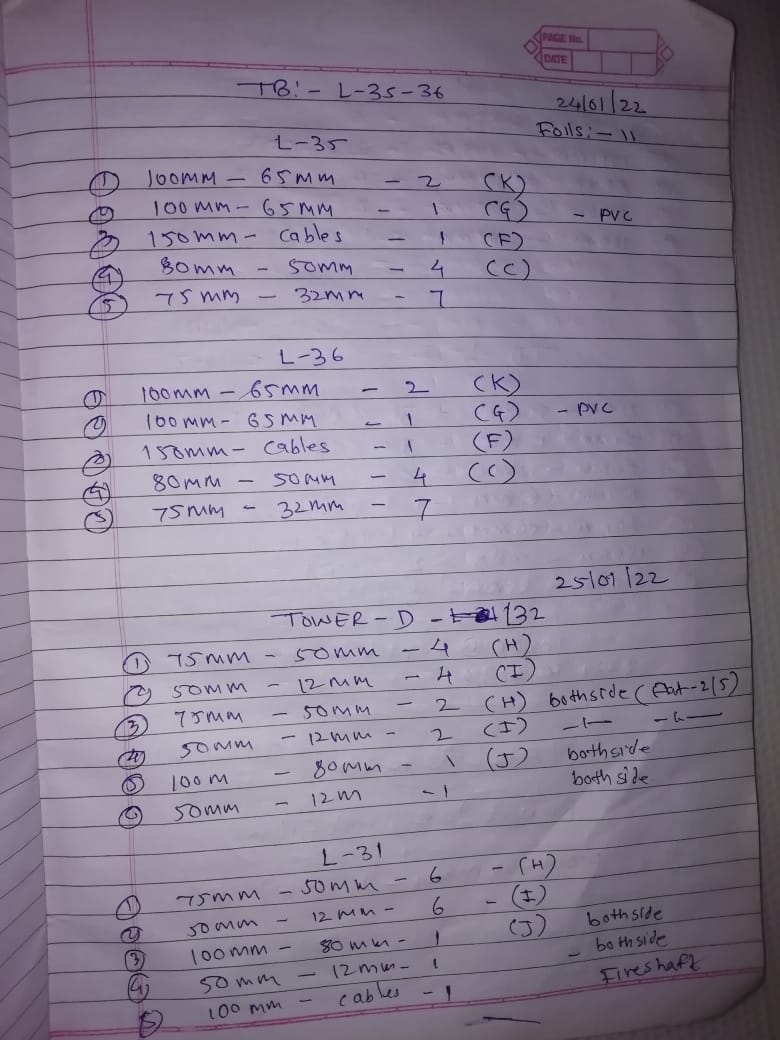 PAGE No.
DATE
TB:- L-35-36
24/01/22
Foils:- 11
L-35
① 100MM - 65MM - 2 (K)
② 100MM - 65MM - 1 (G) - PVC
③ 150MM - Cables - 1 (F)
④ 80MM - 50MM - 4 (C)
⑤ 75MM - 32MM - 7
L-36
① 100MM - 65MM - 2 (K)
② 100MM - 65MM - 1 (G) - PVC
③ 150MM - Cables - 1 (F)
④ 80MM - 50MM - 4 (C)
⑤ 75MM - 32MM - 7
25/01/22
TOWER - D - /32
① 75MM - 50MM - 4 (H)
② 50MM - 12MM - 4 (I)
③ 75MM - 50MM - 2 (H) bothside (flat-2/5)
④ 50MM - 12MM - 2 (I) -11- -11-
⑤ 100M - 80MM - 1 (J) bothside
⑥ 50MM - 12M - 1 both side
L-31
① 75MM - 50MM - 6 - (H)
② 50MM - 12MM - 6 - (I)
③ 100MM - 80MM - 1 (J) bothside
④ 50MM - 12MM - 1 - bothside
⑤ 100MM - cables - 1 Fireshaft